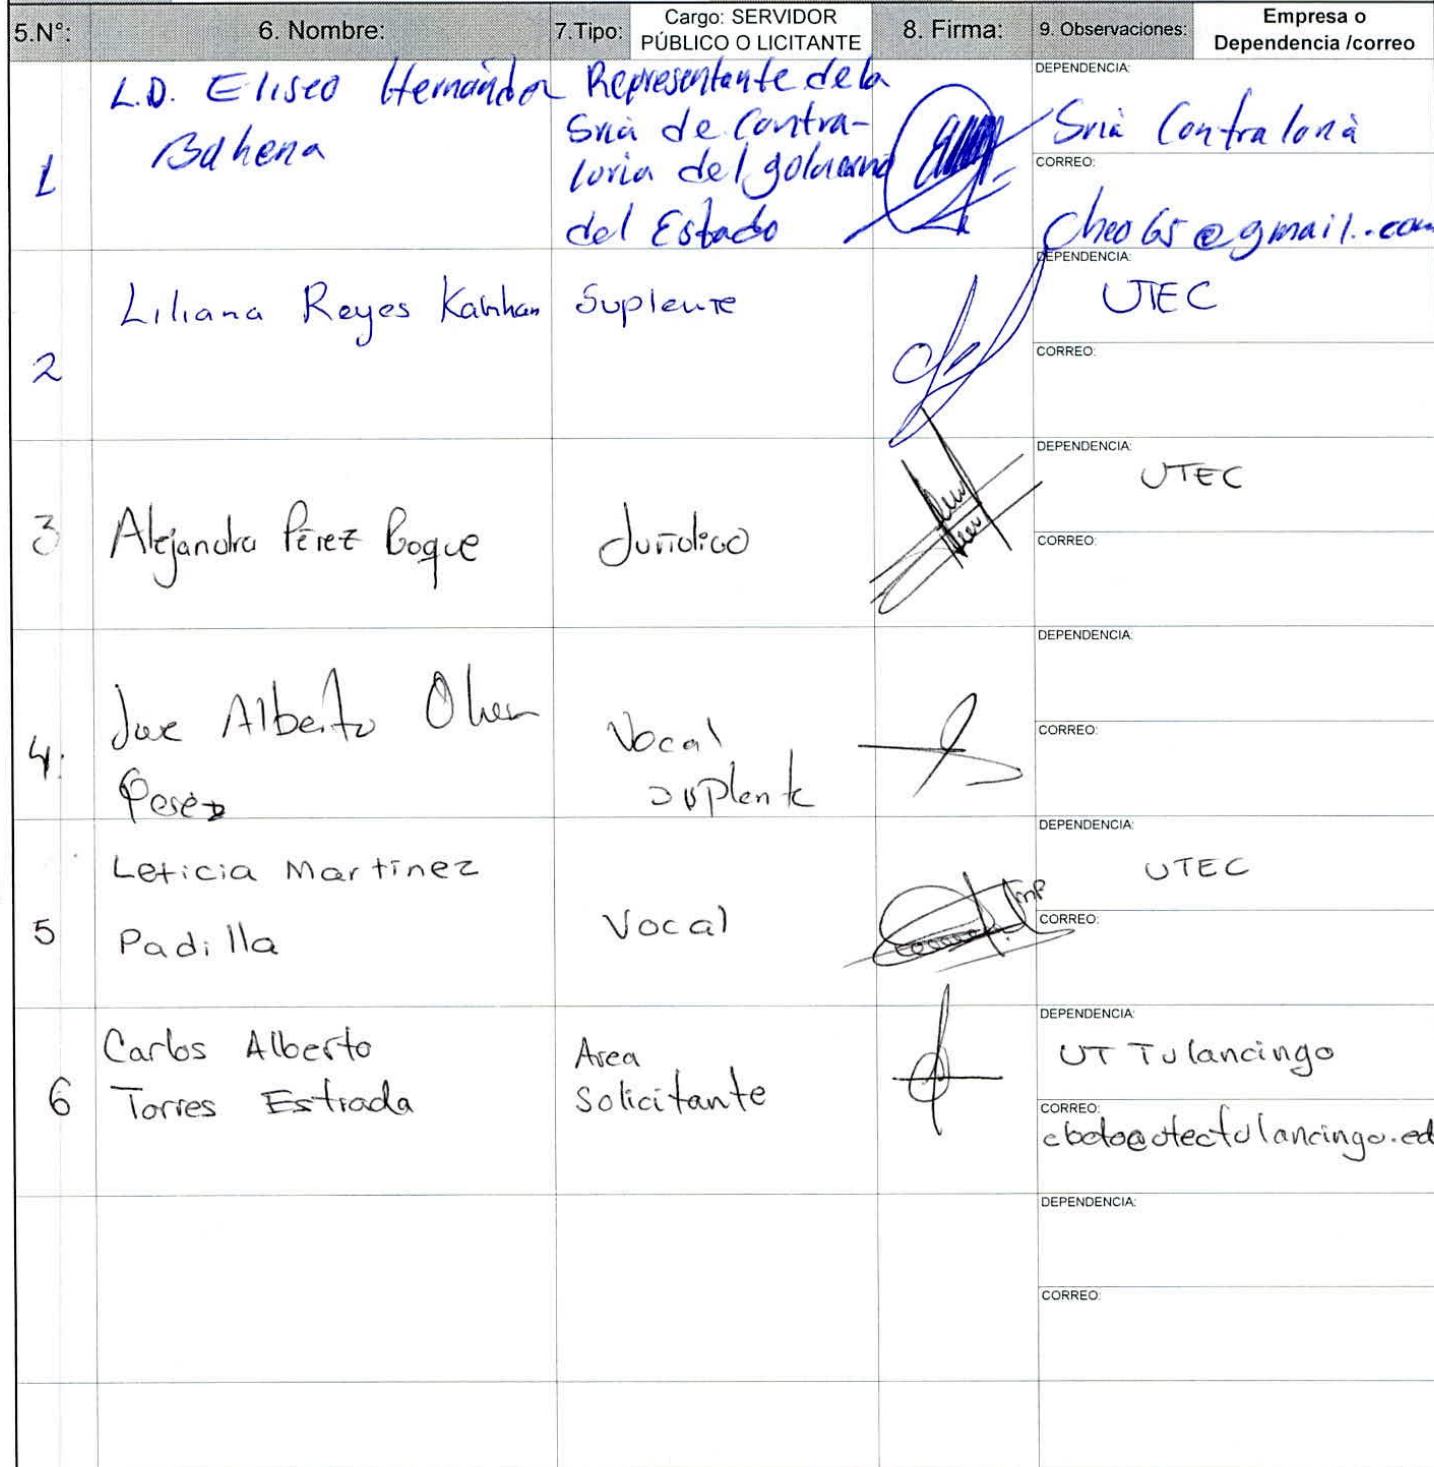 5.N°: 6. Nombre: 7.Tipo: Cargo: SERVIDOR PÚBLICO O LICITANTE 8. Firma: 9. Observaciones: Empresa o Dependencia /correo
1
L.D. Eliseo Hernández
Bahena
Representante de la
Sria de Contra-
loria del gobierno
del Estado
DEPENDENCIA:
Sria Contraloria
CORREO:
cheo65@gmail.com
2
Liliana Reyes
Suplente
DEPENDENCIA:
UTEC
CORREO:
3
Alejandra Pérez Roque
Juridico
DEPENDENCIA:
UTEC
CORREO:
4.
Jose Alberto
Perez
Vocal
suplente
DEPENDENCIA:
CORREO:
5
Leticia Martinez
Padilla
Vocal
DEPENDENCIA:
UTEC
CORREO:
6
Carlos Alberto
Torres Estrada
Area
Solicitante
DEPENDENCIA:
UT Tulancingo
CORREO:
cbeto@utectulancingo.ed
DEPENDENCIA:
CORREO: